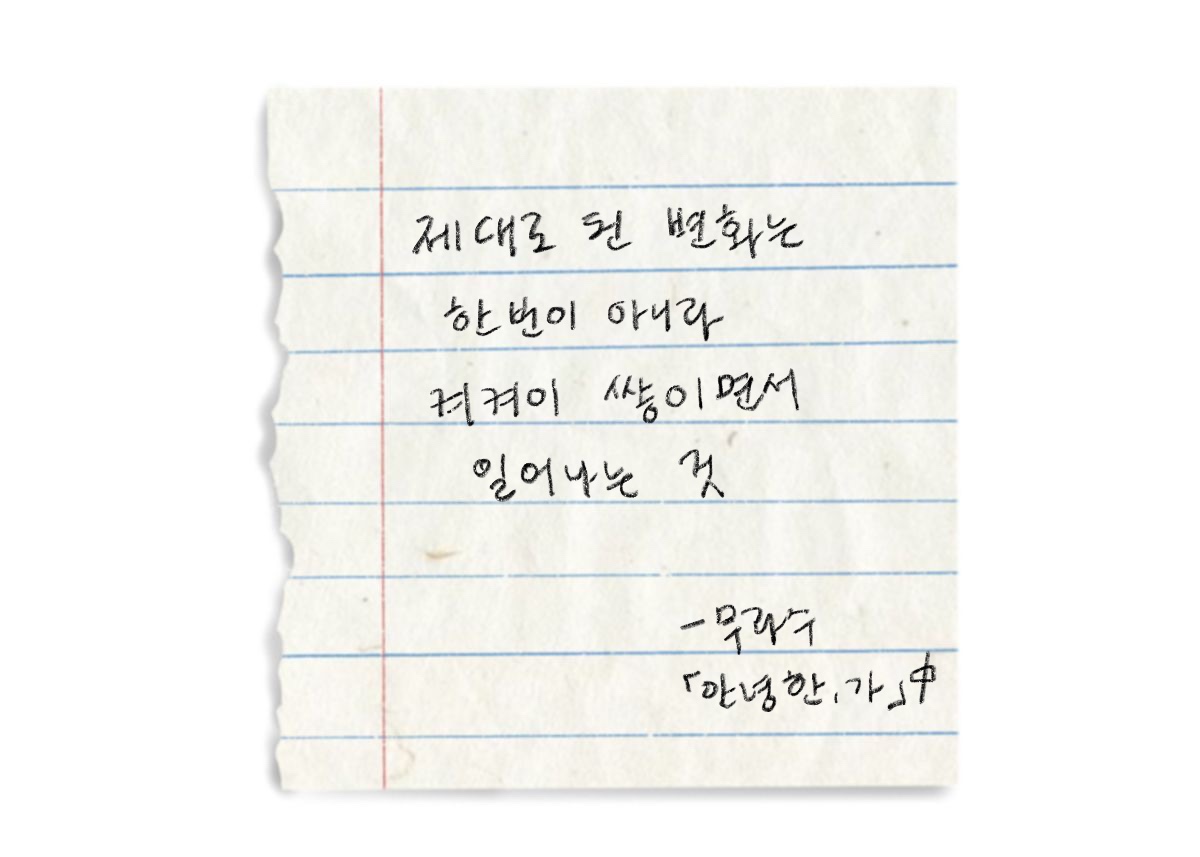 제대로 된 변화는
한번이 아니라
켜켜이 쌓이면서
일어나는 것
-무라수
「안녕한, 가」中